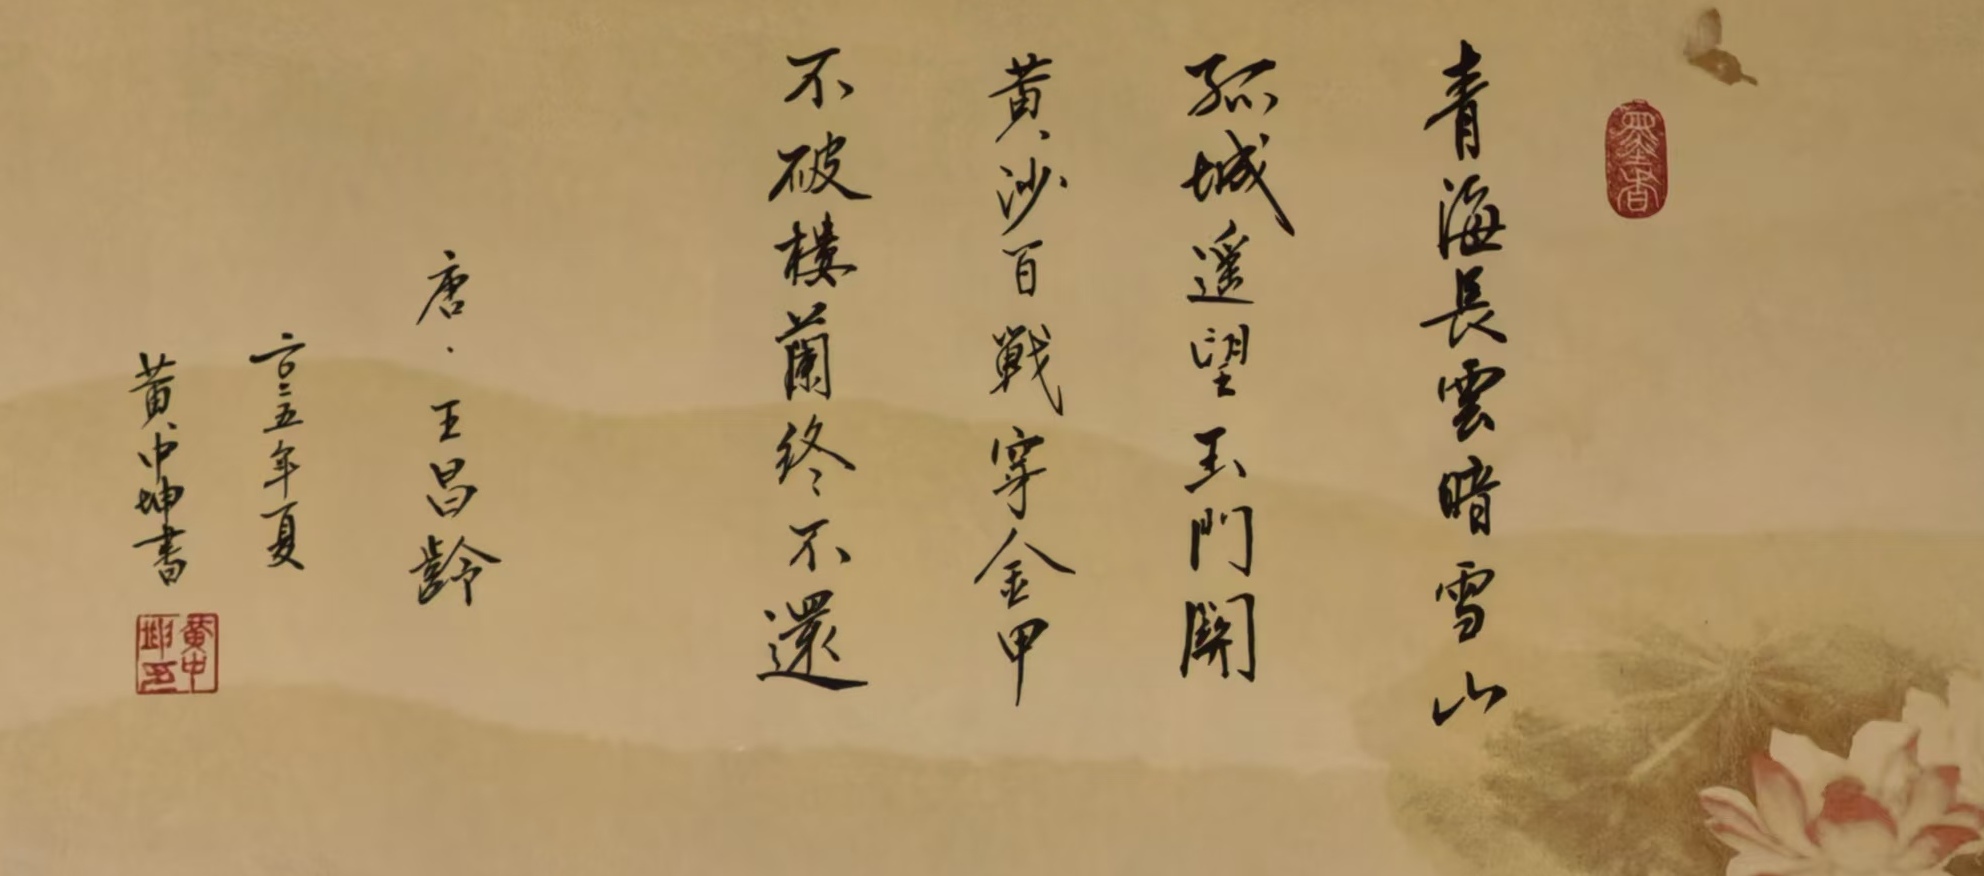 墨香
青海長雲暗雪山
孤城遥望玉門關
黄沙百戰穿金甲
不破樓蘭終不還
唐·王昌齡
二〇二五年夏
黄中坤書
黄中坤印